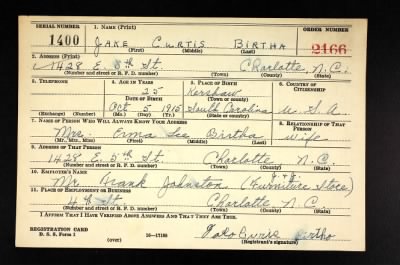 SERIAL NUMBER 1. NAME (Print) ORDER NUMBER
1400 JAKE CURTIS BIRTHA 2166
(First) (Middle) (Last)
2. ADDRESS (Print)
1428 E. 5th St. Charlotte, N.C.
(Number and street or R. F. D. number) (Town) (County) (State)
3. TELEPHONE 4. AGE IN YEARS 5. PLACE OF BIRTH 6. COUNTRY OF CITIZENSHIP
25 Kershaw
DATE OF BIRTH (Town or county)
Oct 5 1915 South Carolina U.S.A.
(Exchange) (Number) (Mo.) (Day) (Yr.) (State or country)
7. NAME OF PERSON WHO WILL ALWAYS KNOW YOUR ADDRESS 8. RELATIONSHIP OF THAT PERSON
Mrs. Erma Lee Birtha Wife
(Mr., Mrs., Miss) (First) (Middle) (Last)
9. ADDRESS OF THAT PERSON
1428 E. 5th St. Charlotte N.C.
(Number and street or R. F. D. number) (Town) (County) (State)
10. EMPLOYER'S NAME
Mr. Frank Johnston (Furniture Store)
11. PLACE OF EMPLOYMENT OR BUSINESS
4th St Charlotte N.C.
(Number and street or R. F. D. number) (Town) (County) (State)
I AFFIRM THAT I HAVE VERIFIED ABOVE ANSWERS AND THAT THEY ARE TRUE.
REGISTRATION CARD
D. S. S. Form 1 16—17105
(over) (Registrant's signature)